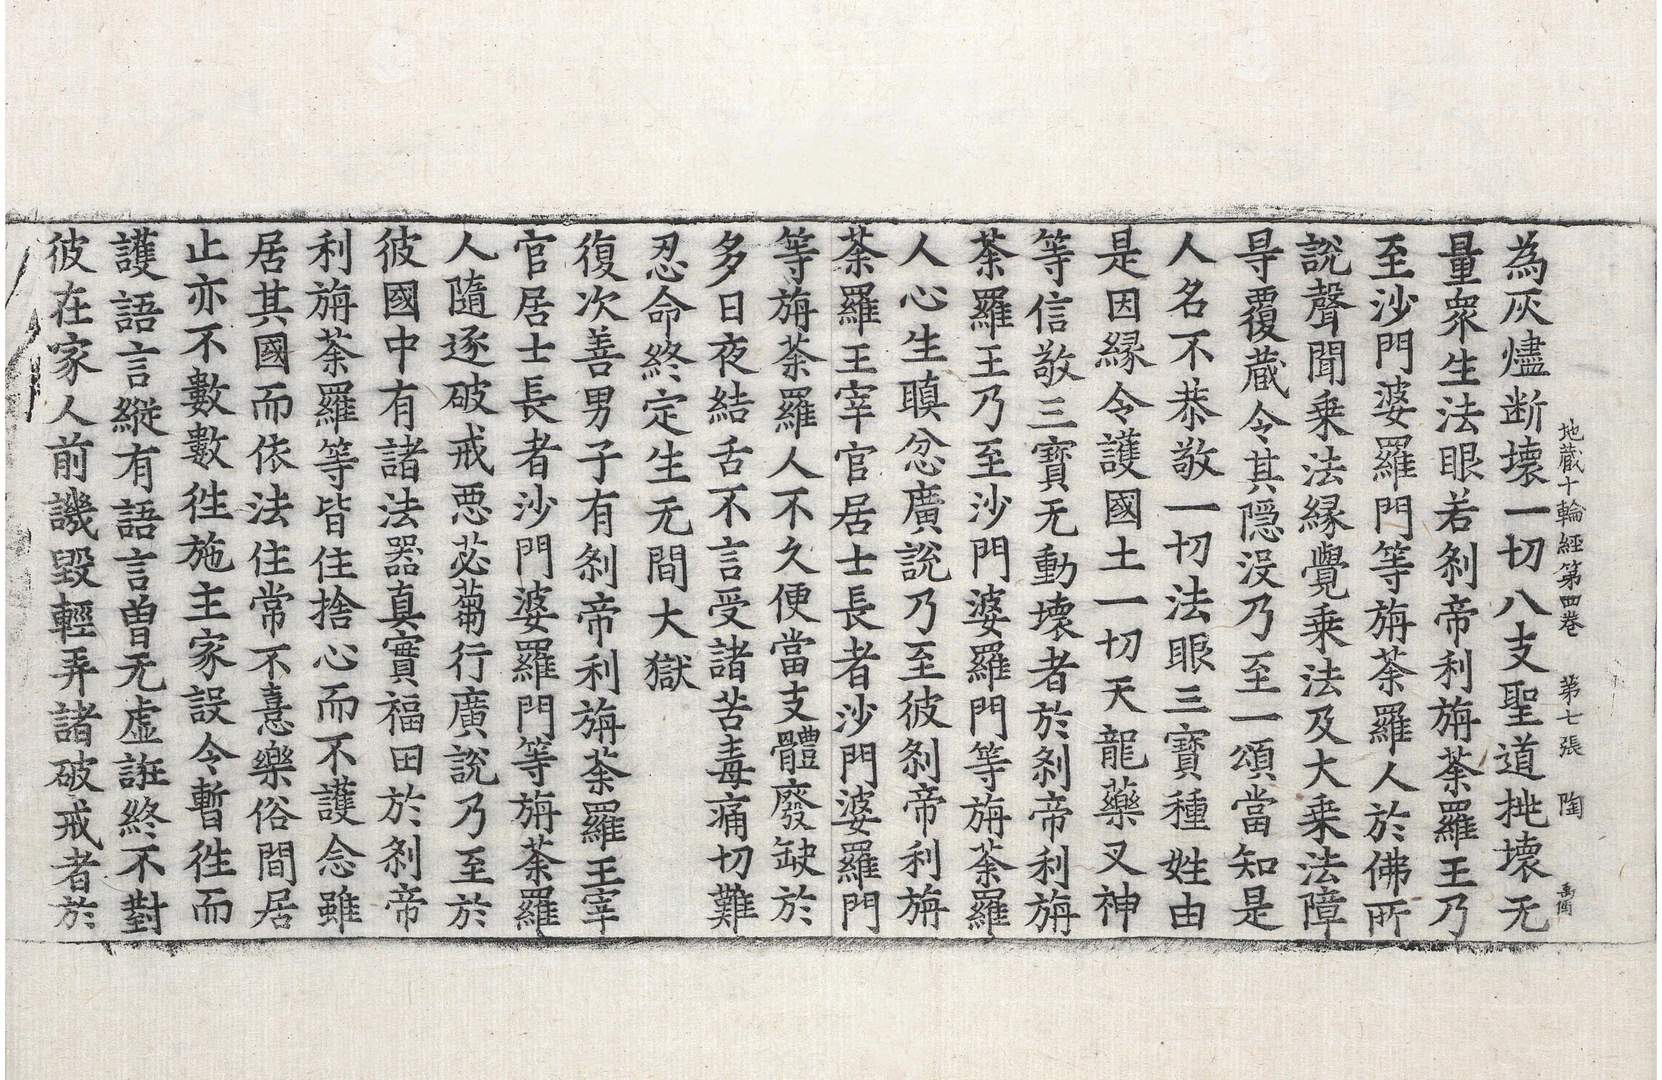 地藏十輪經第四卷　第七張　陶
為灰燼断壊一切八支聖道挑壊无
量衆生法眼若刹帝利旃荼羅王乃
至沙門婆羅門等旃荼羅人於佛所
說聲聞乗法縁覺乗法及大乗法障
㝵覆蔵令其隠没乃至一頌當知是
人名不恭敬一切法眼三寳種姓由
是因縁令護國土一切天龍藥叉神
等信敬三寳无動壊者於刹帝利旃
荼羅王乃至沙門婆羅門等旃荼羅
人心生瞋忿廣說乃至彼刹帝利旃
荼羅王宰官居士長者沙門婆羅門
等旃荼羅人不久便當支體廢缺於
多日夜結舌不言受諸苦毒痛切難
忍命終定生无間大獄
復次善男子有刹帝利旃荼羅王宰
官居士長者沙門婆羅門等旃荼羅
人隨逐破戒惡苾蒭行廣說乃至於
彼國中有諸法器真實福田於刹帝
利旃荼羅等皆住捨心而不護念雖
居其國而依法住常不憙樂俗間居
止亦不數數徃施主家設令暫徃而
護語言縱有語言曽无虚誑終不對
彼在家人前譏毀輕弄諸破戒者於